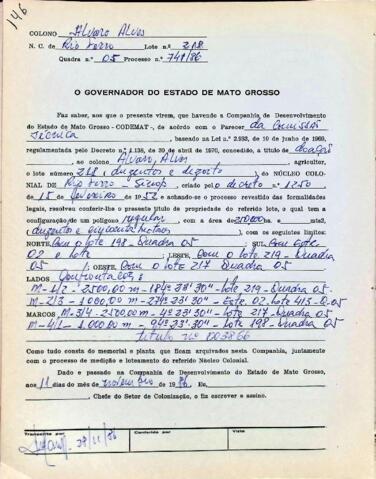 146
COLONO Alvaro Alves
N. C. de Rio Ferro Lote n.º 218
Quadra n.º 05 Processo n.º 748/86
O GOVERNADOR DO ESTADO DE MATO GROSSO
Faz saber, aos que o presente virem, que havendo a Companhia de Desenvolvimento
do Estado de Mato Grosso - CODEMAT-, de acôrdo com o Parecer da Comissão
Técnica, baseado na Lei n.º 2.933, de 10 de junho de 1969,
regulamentada pelo Decreto n.º 1.138, de 30 de abril de 1970, concedido, a título de doação
, ao colono Alvaro, Alves agricultor,
o lote número 218 (duzentos e dezoito) do NÚCLEO COLO-
NIAL DE Rio Ferro - Sinop, criado pelo decreto n.º 1250
de 15 de fevereiro 1952 e achando-se o processo revestido das formalidades
legais, resolveu conferir-lhe o presente título de propriedade do referido lote, o qual tem a
configuração de um polígono regular com a área de 250000 mts2,
(duzentos e cinquenta mil mts) com os seguintes limites:
NORTE, Com o lote 198 - Quadra 05; SUL, Com Este.
02 e lote; LESTE, Com o lote 219 - Quadra
05; OESTE, Com o lote 217 Quadra 05
LADOS Confrontações
M-1/2 - 2500,00 m - 184º 23' 30" - lote 219 - Quadra 05
M-2/3 - 1.000,00 m - 274º 23' 30" - Este. 02. lote 413 - Q. 05
MARCOS M-3/4 - 2500.00 m - 4º 23' 30" - lote 217 - Quadra 05
M-4/1 - 1.000.00 m - 94º 23' 30" - lote 198 - Quadra 05
Título nº 003866
Como tudo consta do memorial e planta que ficam arquivados nesta Companhia, juntamente
com o processo de medição e loteamento do referido Núcleo Colonial.
Dado e passado na Companhia de Desenvolvimento do Estado de Mato Grosso,
aos 11 dias do mês de novembro de 1986, Eu,
, Chefe do Setor de Colonização, o fiz escrever e assino.
Transcrito por Conferido por Visto
29/11/86